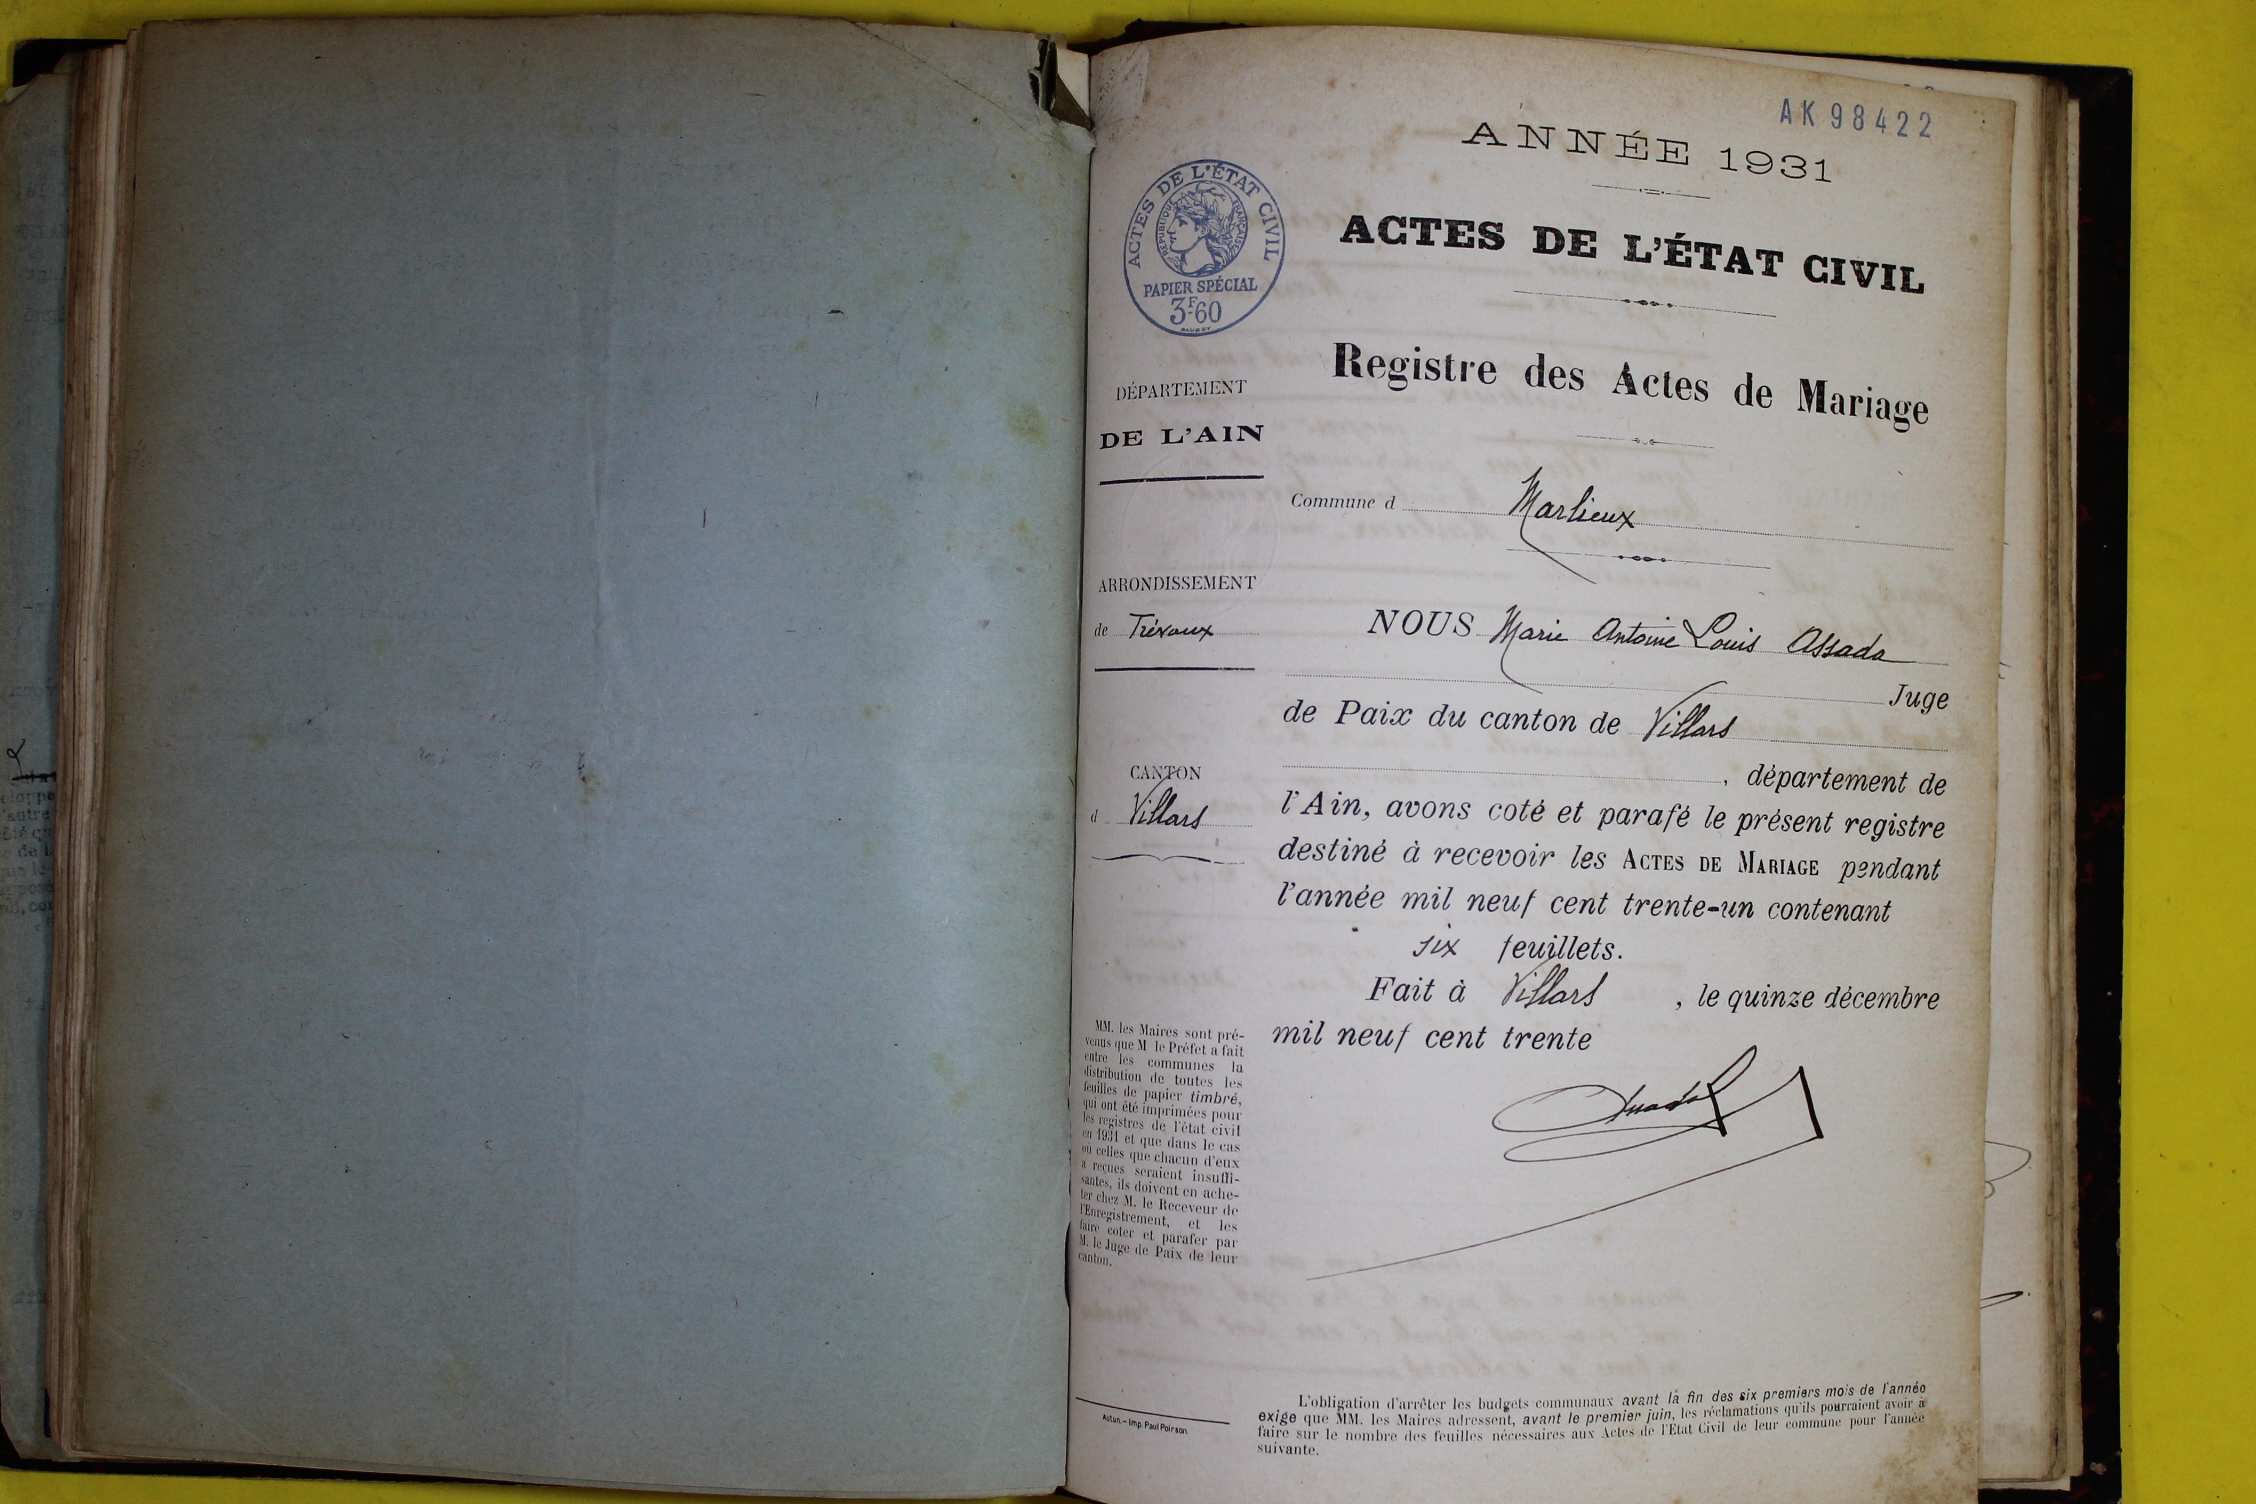 AK 98422
ANNÉE 1931
ACTES DE L'ÉTAT CIVIL
RÉPUBLIQUE FRANÇAISE
PAPIER SPÉCIAL
3F60
ACTES DE L'ÉTAT CIVIL
Registre des Actes de Mariage
DÉPARTEMENT
DE L'AIN
Commune d Marlieux
ARRONDISSEMENT
de Trévoux
NOUS Marie Antoine Louis Assada
Juge
de Paix du canton de Villars
, département de
CANTON
d Villars
l'Ain, avons coté et parafé le présent registre
destiné à recevoir les ACTES DE MARIAGE pendant
l'année mil neuf cent trente-un contenant
six feuillets.
Fait à Villars , le quinze décembre
mil neuf cent trente
MM. les Maires sont pré-
venus que M le Préfet a fait
entre les communes la
distribution de toutes les
feuilles de papier timbré,
qui ont été imprimées pour
les registres de l'état civil
en 1931 et que dans le cas
où celles que chacun d'eux
a reçues seraient insuffi-
santes, ils doivent en ache-
ter chez M. le Receveur de
l'Enregistrement, et les
faire coter et parafer par
M. le Juge de Paix de leur
canton.
Autun. – Imp. Paul Poirson
L'obligation d'arrêter les budgets communaux avant la fin des six premiers mois de l'année
exige que MM. les Maires adressent, avant le premier juin, les réclamations qu'ils pourraient avoir à
faire sur le nombre des feuilles nécessaires aux Actes de l'Etat Civil de leur commune pour l'année
suivante.